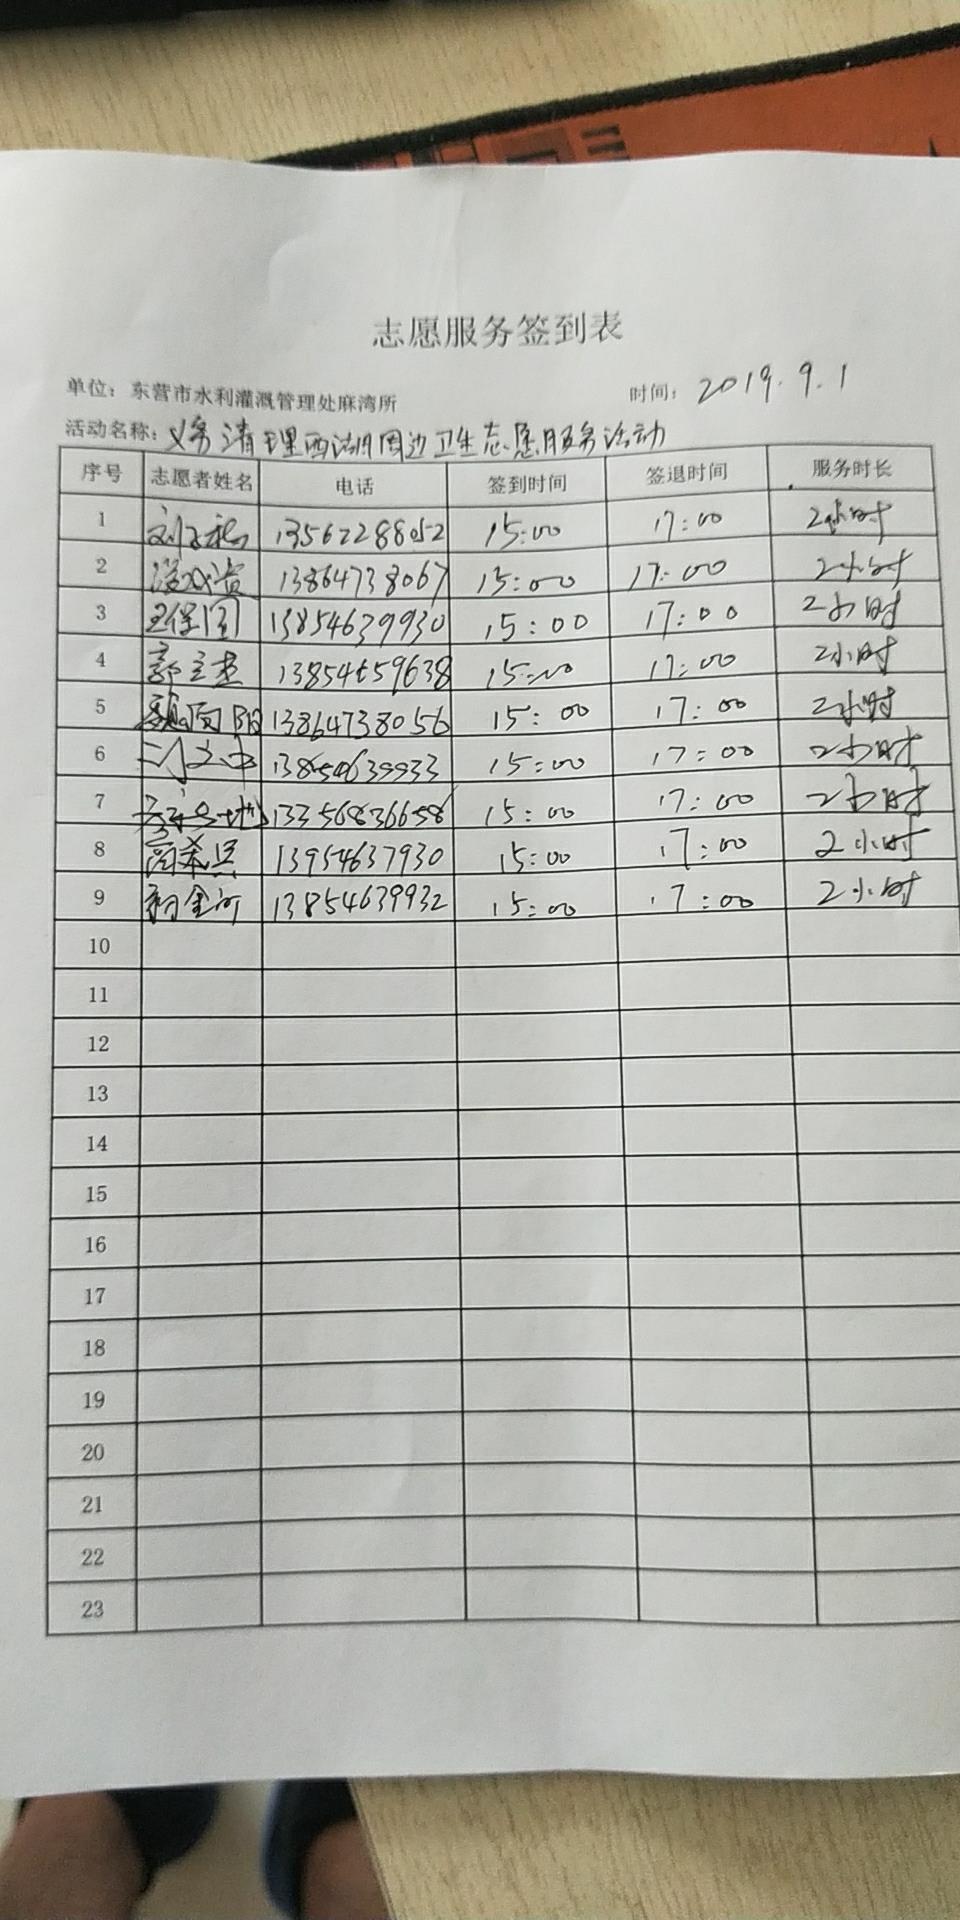 志愿服务签到表
单位：东营市水利灌溉管理处麻湾所 时间：2019.9.1
活动名称：义务清理西湖周边卫生志愿服务活动
序号 志愿者姓名 电话 签到时间 签退时间 服务时长
1 13562288052 15:00 17:00 2小时
2 13864738067 15:00 17:00 2小时
3 王保国 13854639930 15:00 17:00 2小时
4 13854659638 15:00 17:00 2小时
5 13864738056 15:00 17:00 2小时
6 13854639933 15:00 17:00 2小时
7 15:00 17:00 2小时
8 13954637930 15:00 17:00 2小时
9 13854639932 15:00 17:00 2小时
10
11
12
13
14
15
16
17
18
19
20
21
22
23